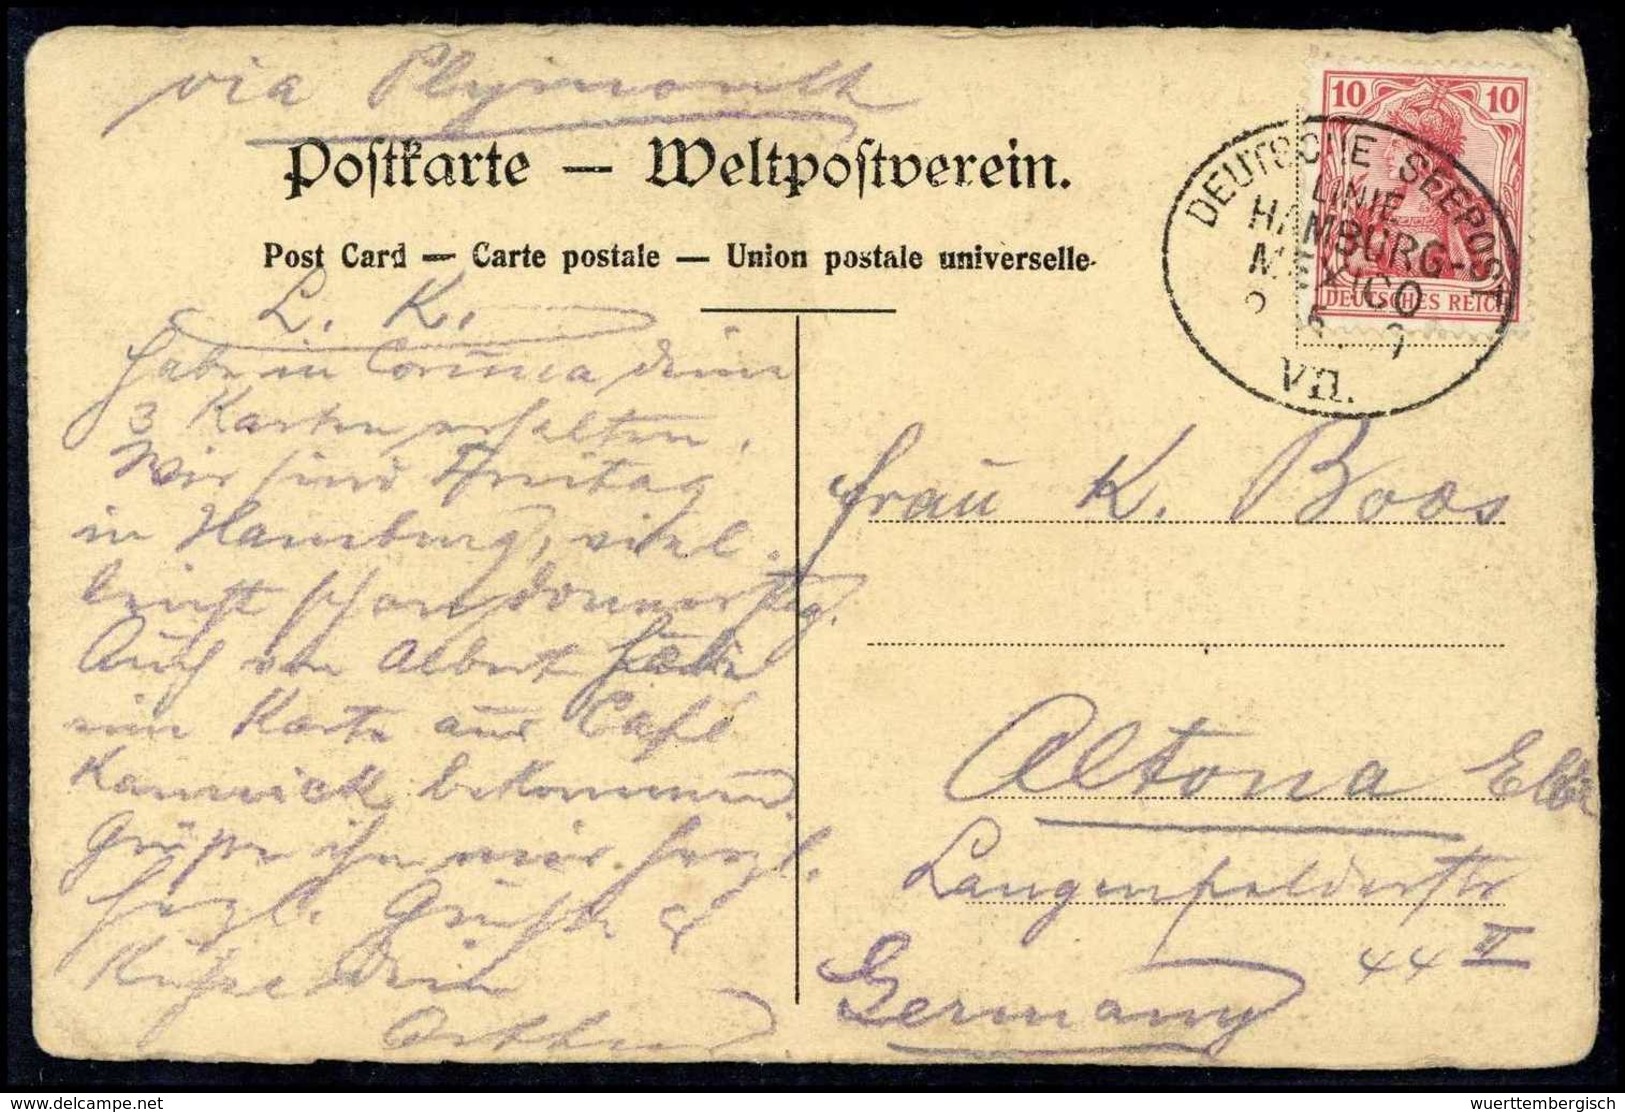 via Plymouth
Postkarte — Weltpostverein.
Post Card — Carte postale — Union postale universelle.
10 10
DEUTSCHES REICH
DEUTSCHE SEEPOST
LINIE
HAMBURG-
MEXICO
VII.
L. K.
Habe in Coruña deine
3 Karten erhalten.
Wir sind Freitag
in Hamburg, viel-
leicht schon Donnerstag.
Auch von Albert habe
eine Karte aus Café
bekommen
Grüße ihn mir herzl.
Herzl. Grüße &
Küsse Dein
Frau K. Boos
Altona Elbe
Langenfelderstr
44 II
Germany
delcampe.net
wuerttembergisch